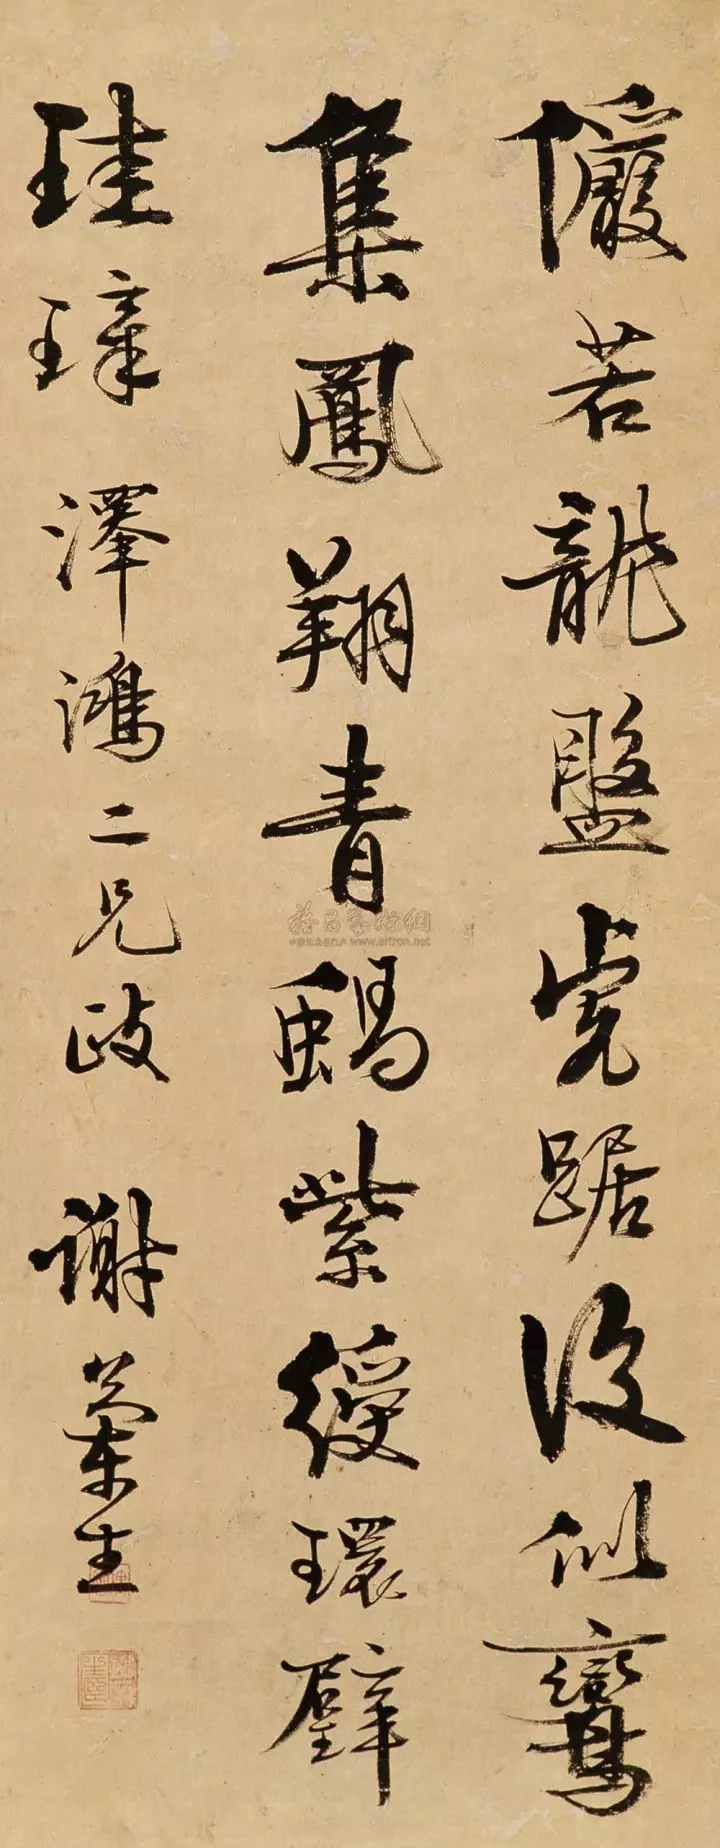 儼若龍盤虎踞後似鸞
集鳳翔青鷊紫綬環璧
珪璋 澤鴻二兄政 謝蘭生
www.artron.net